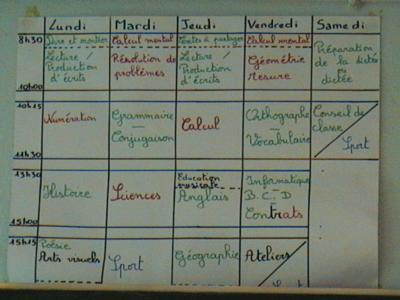 Lundi Mardi Jeudi Vendredi Samedi
8h30
Dire et montrer Calcul mental Textes à partager Calcul mental
Lecture / Résolution de Lecture / Géométrie Préparation
Production problèmes Production Mesure de la dictée
d'écrits d'écrits ou
dictée
10h00
10h15
Numération Grammaire Calcul Orthographe Conseil de
— — classe
Conjugaison Vocabulaire Sport
11h30
13h30
Education
musicale
Histoire Sciences Anglais Informatique
B.C.D
Contrats
15h00
15h15
Poésie
Arts visuels Sport Géographie Ateliers